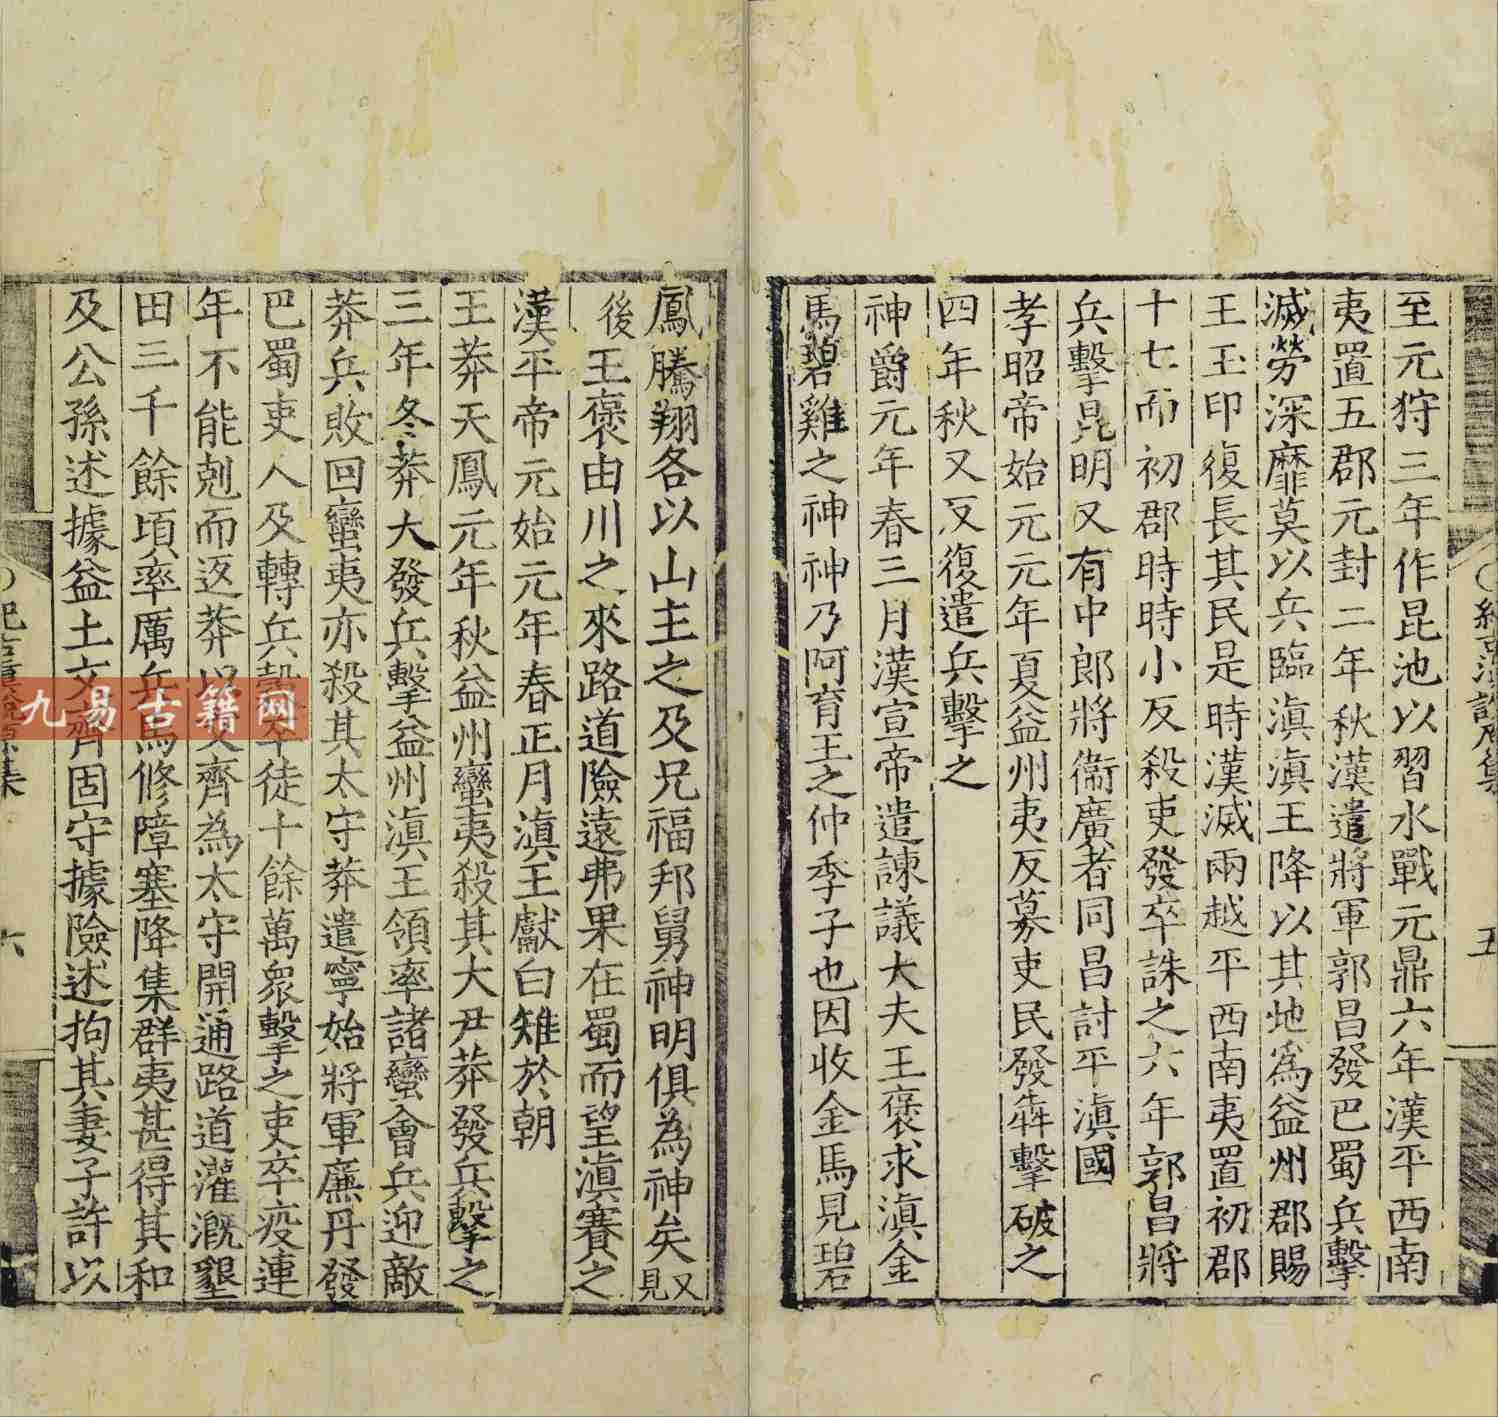 至元狩三年作昆池以習水戰元鼎六年漢平西南
夷置五郡元封二年秋漢遣將軍郭昌發巴蜀兵擊
滅勞深靡莫以兵臨滇滇王降以其地為益州郡賜
王玉印復長其民是時漢滅兩越平西南夷置初郡
十七而初郡時時小反殺吏發卒誅之六年郭昌將
兵擊昆明又有中郎將衞廣者同昌討平滇國
孝昭帝始元元年夏益州夷反募吏民發犇擊破之
四年秋又反復遣兵擊之
神爵元年春三月漢宣帝遣諫議大夫王褒求滇金
馬碧雞之神神乃阿育王之仲季子也因收金馬見碧
五
鳳騰翔各以山主之及兄福邦舅神明俱為神矣又見
後王褒由川之來路道險遠弗果在蜀而望滇賽之
漢平帝元始元年春正月滇王獻白雉於朝
王莽天鳳元年秋益州蠻夷殺其大尹莽發兵擊之
三年冬莽大發兵擊益州滇王領率諸蠻會兵迎敵
莽兵敗回蠻夷亦殺其太守莽遣寧始將軍廉丹發
巴蜀吏人及轉兵穀卒徒十餘萬衆擊之吏卒疫連
年不能剋而返莽以文齊為太守開通路道灌溉墾
田三千餘頃率厲兵馬修障塞降集群夷甚得其和
及公孫述據益土文齊固守據險述拘其妻子許以
六
九易古籍网